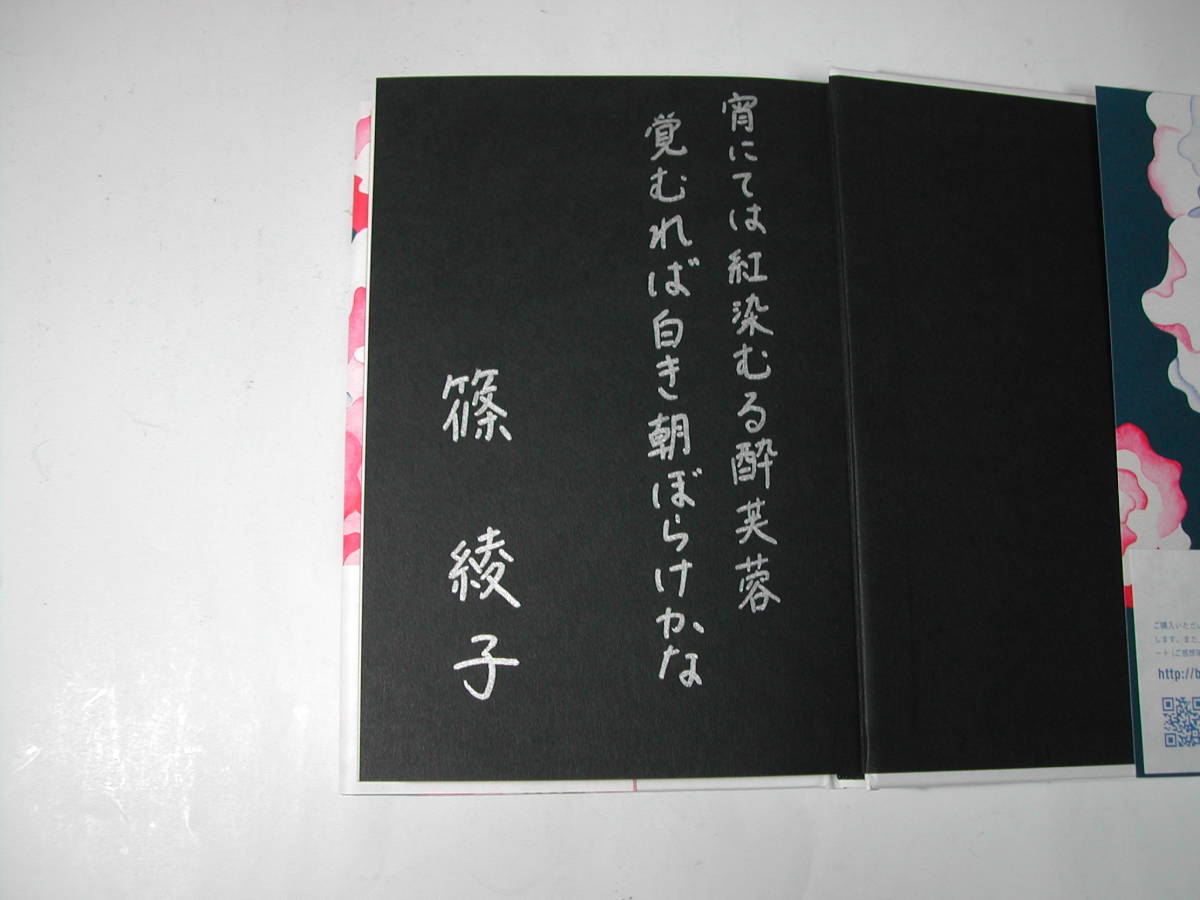 宵にては紅染むる酔芙蓉
覚むれば白き朝ぼらけかな
篠 綾子
ご購入いただい
します。また、
ート(ご感想
http://b